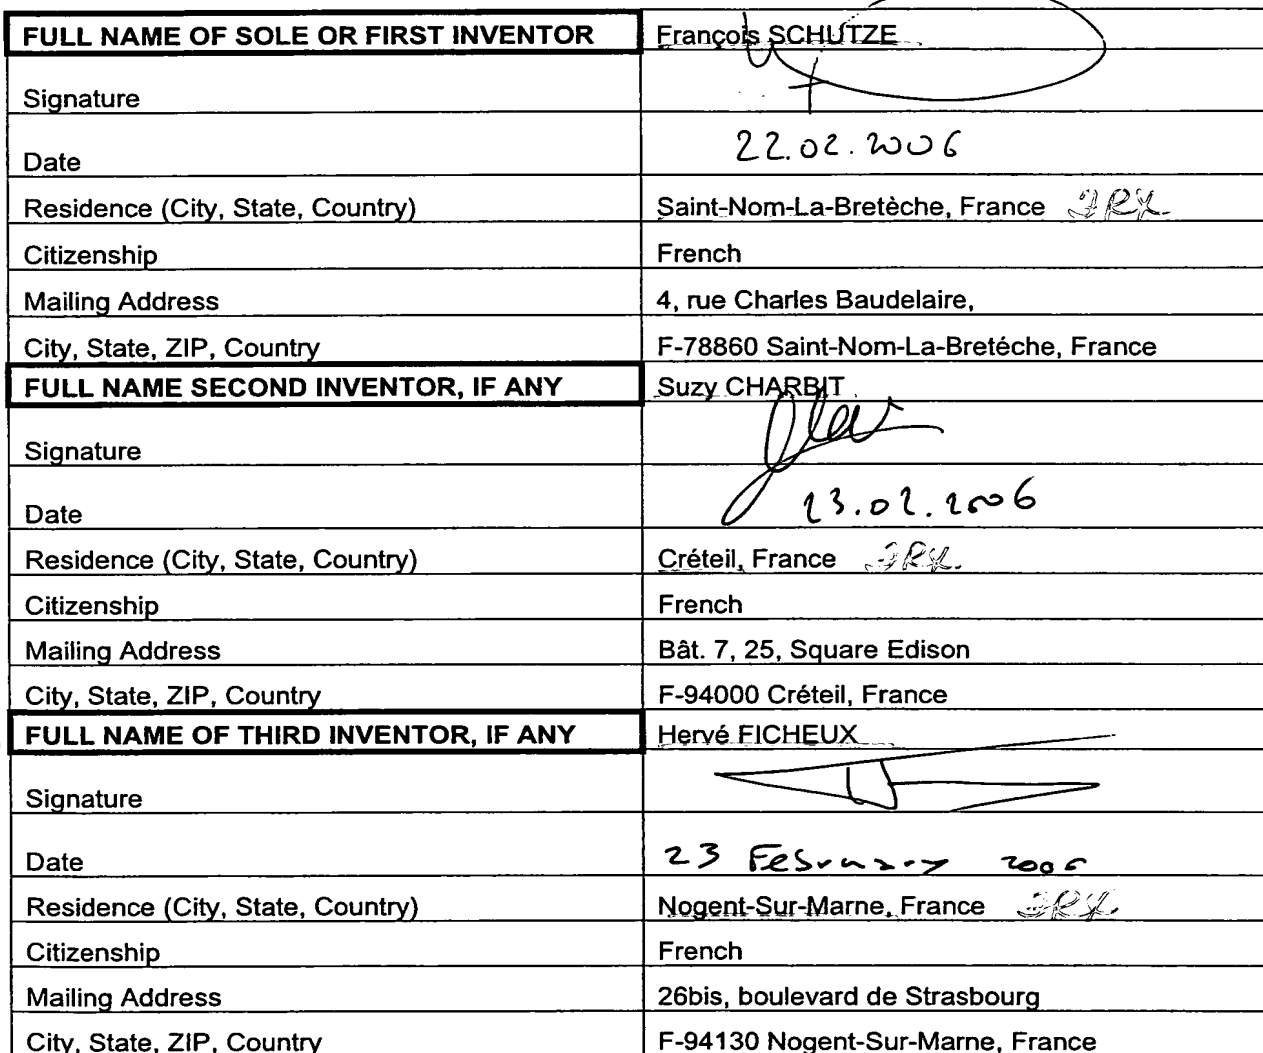 FULL NAME OF SOLE OR FIRST INVENTOR François SCHUTZE
Signature
Date 22.02.2006
Residence (City, State, Country) Saint-Nom-La-Bretèche, France FRX
Citizenship French
Mailing Address 4, rue Charles Baudelaire,
City, State, ZIP, Country F-78860 Saint-Nom-La-Bretéche, France
FULL NAME SECOND INVENTOR, IF ANY Suzy CHARBIT
Signature
Date 23.02.2006
Residence (City, State, Country) Créteil, France FRX
Citizenship French
Mailing Address Bât. 7, 25, Square Edison
City, State, ZIP, Country F-94000 Créteil, France
FULL NAME OF THIRD INVENTOR, IF ANY Hervé FICHEUX
Signature
Date 23 February 2006
Residence (City, State, Country) Nogent-Sur-Marne, France FRX
Citizenship French
Mailing Address 26bis, boulevard de Strasbourg
City, State, ZIP, Country F-94130 Nogent-Sur-Marne, France